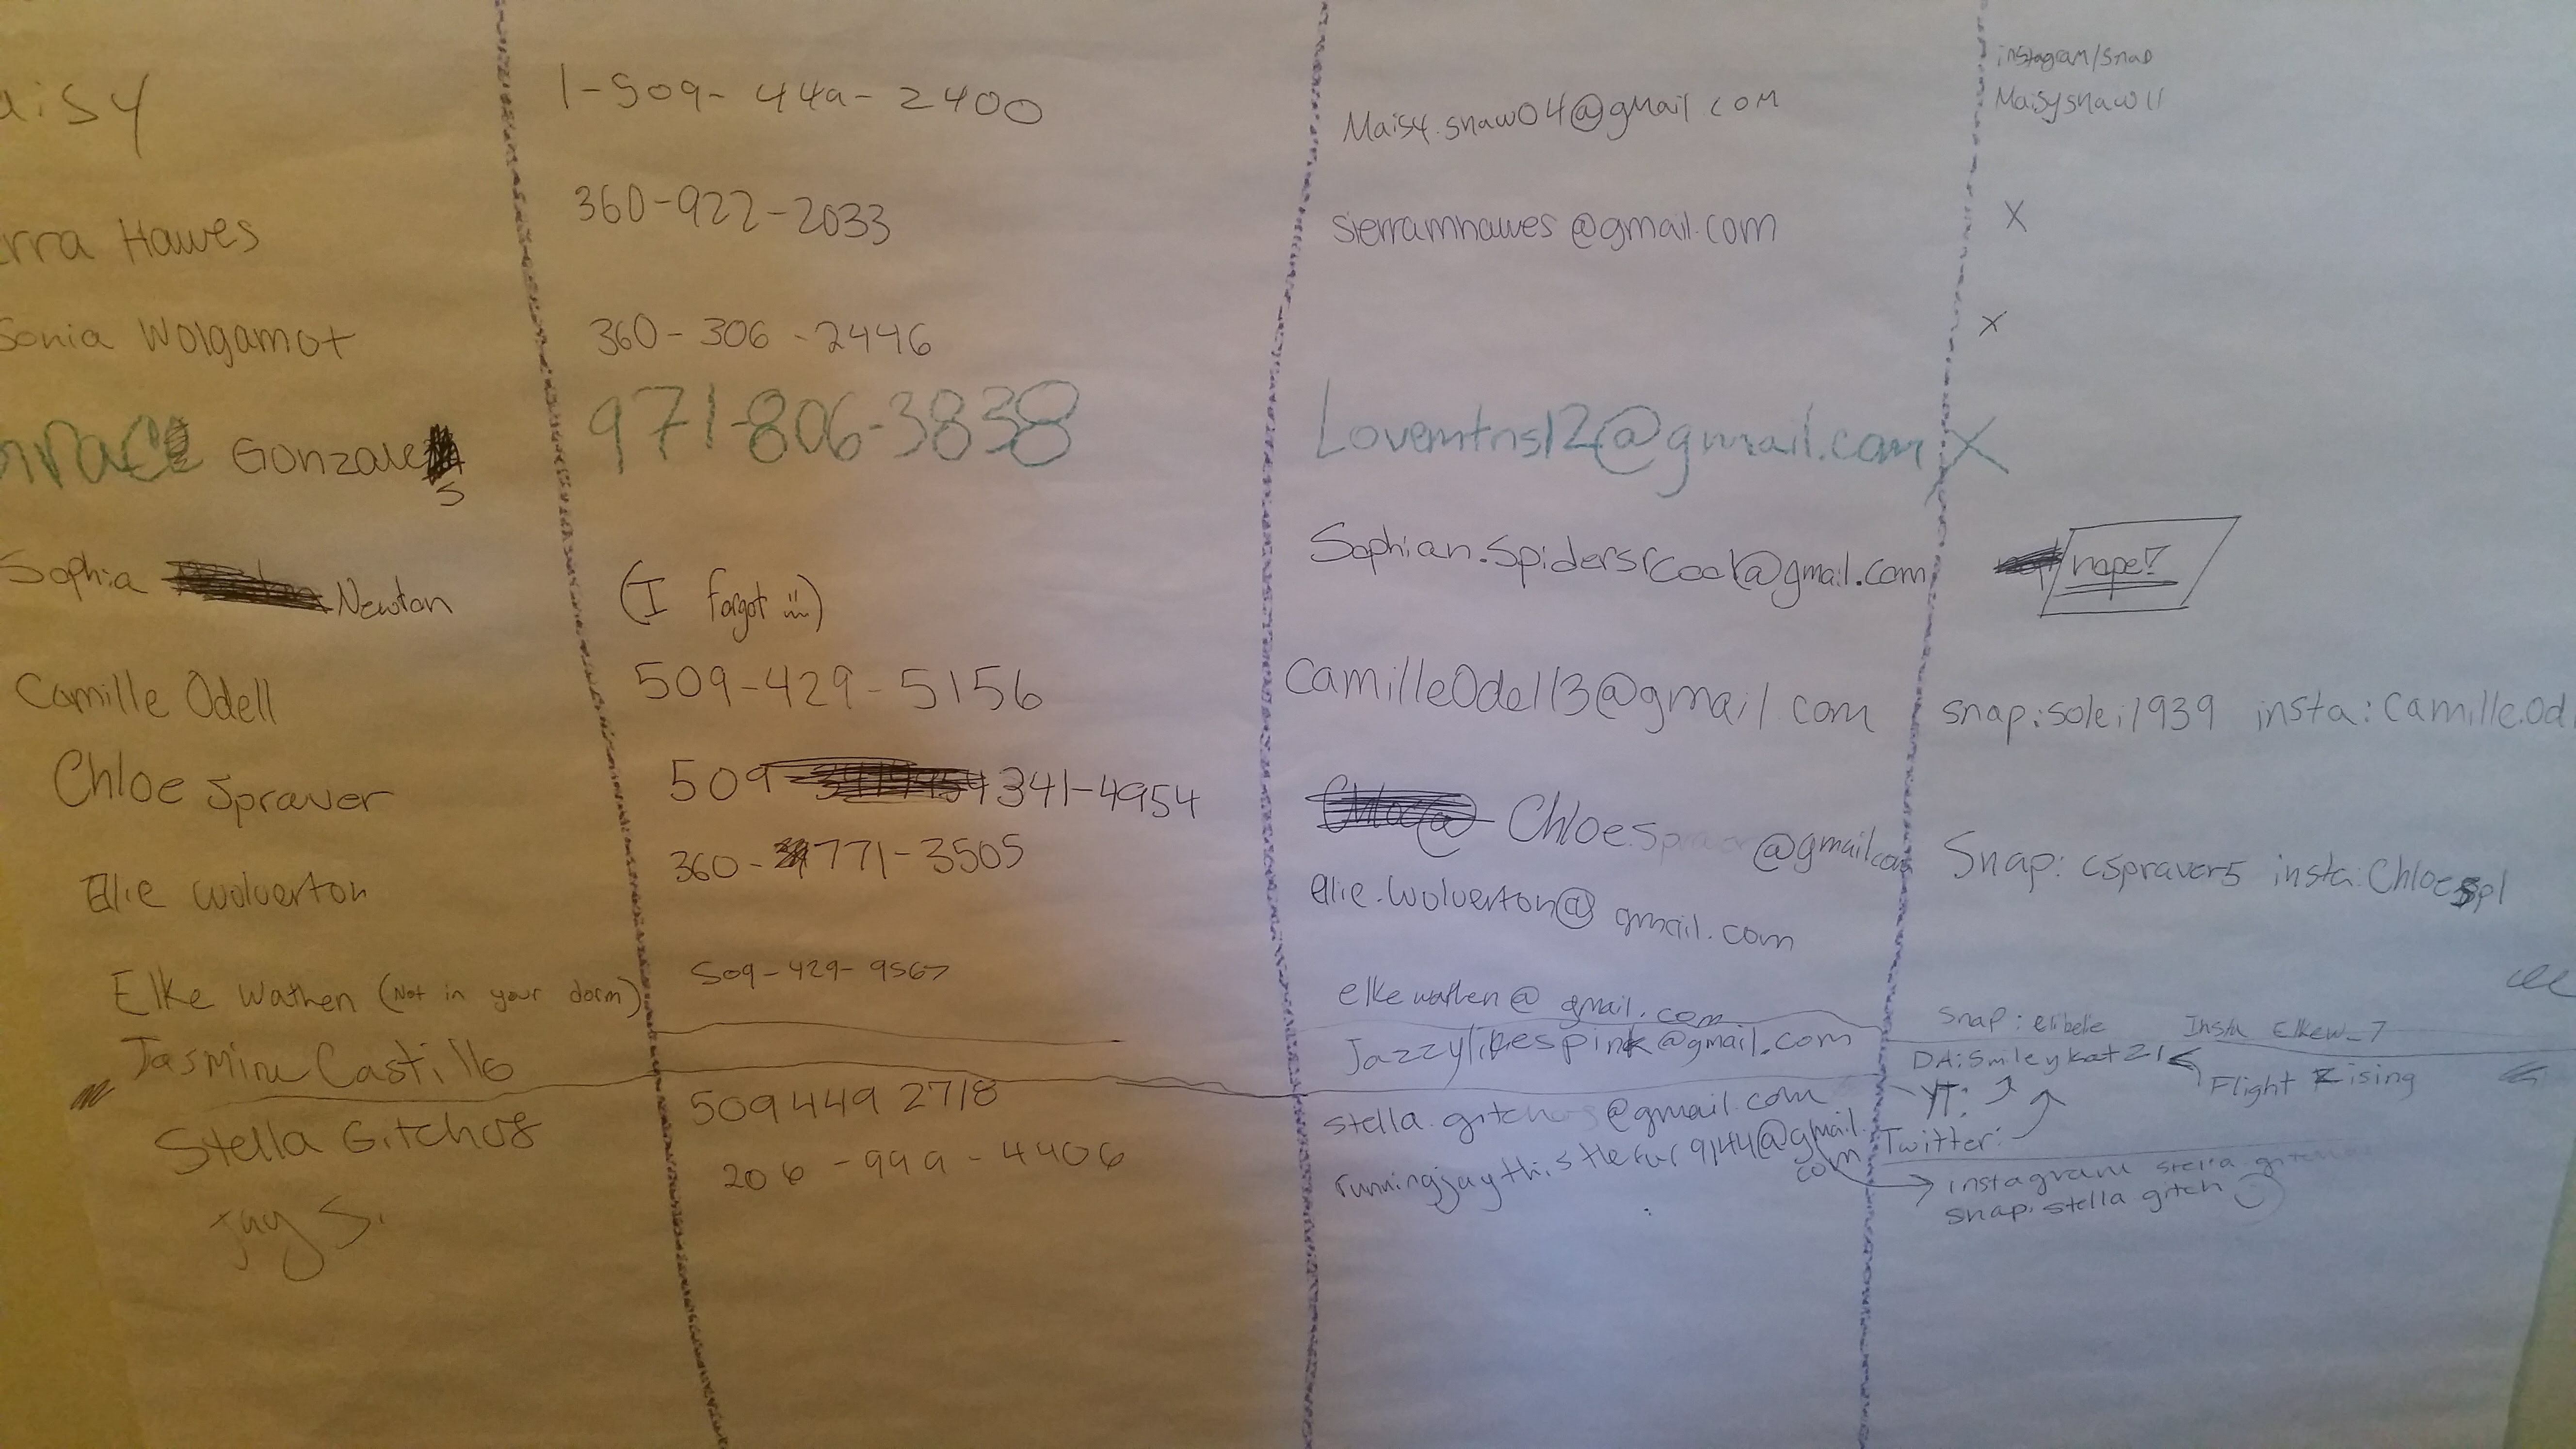 instagram/snap
aisy 1-509-449-2400 Maisy.shaw04@gmail com Maisyshaw11
rra Hawes 360-922-2033 sierramhawes@gmail.com X
Sonia Wolgamot 360-306-2446 X
Gonzales 971-806-3838 Lovemtns12@gmail.com X
Sophia Newton (I forgot) Sophian.Spidersrcool@gmail.com nope!
Camille Odell 509-429-5156 camilleOdell3@gmail.com snap:solei1939 insta:camille.od
Chloe Spraver 509 341-4954 Chloe.Spraver@gmail.com Snap: cspraver5 insta:Chloespl
Ellie Wolverton 360-771-3505 ellie.wolverton@gmail.com
Elke Wathen (Not in your dorm) 509-429-9567 elkewathen@gmail.com snap: Insta Elkew_7
Jasmine Castillo Jazzylikespink@gmail.com DA:Smileykat21 Flight Rising
YT:
Twitter:
Stella Gitchos 509 449 2718 stella.gitchos@gmail.com instagram stella.
snap: stella gitch
Jay S. 206-999-4406 runningjaythistlefur9144@gmail.com